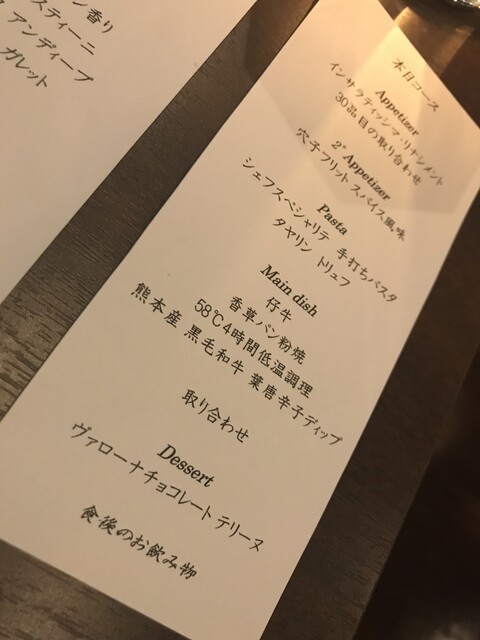 ン香り
スティーニ
アンディーブ
ガレット
本日コース
Appetizer
インサラティッシマ・リナシメント
30品目の取り合わせ
2° Appetizer
穴子フリット スパイス風味
Pasta
シェフスペシャリテ 手打ちパスタ
タヤリン トリュフ
Main dish
仔牛
香草パン粉焼
58℃4時間低温調理
熊本産 黒毛和牛 葉唐辛子ディップ
取り合わせ
Dessert
ヴァローナチョコレート テリーヌ
食後のお飲み物